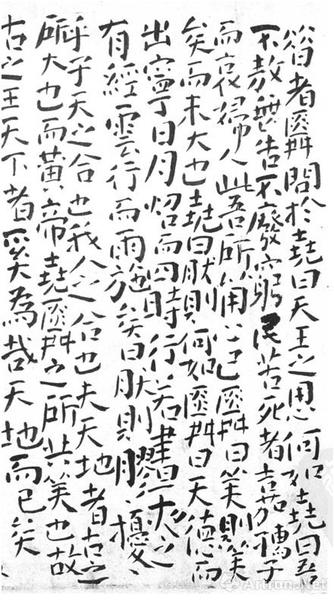 昔者舜問於堯曰天王之用心何如堯曰吾
不敖無告不廢窮民苦死者嘉孺子
而哀婦人此吾所用心已舜曰美則美
矣而未大也堯曰然則何如舜曰天德而
出寧日月照而四時行若晝夜之
有經雲行而雨施矣曰然則膠〻擾〻
乎子天之合也我人之合也夫天地者古之
所大也而黃帝堯舜之所共美也故
古之王天下者奚為哉天地而已矣
Artron.Net